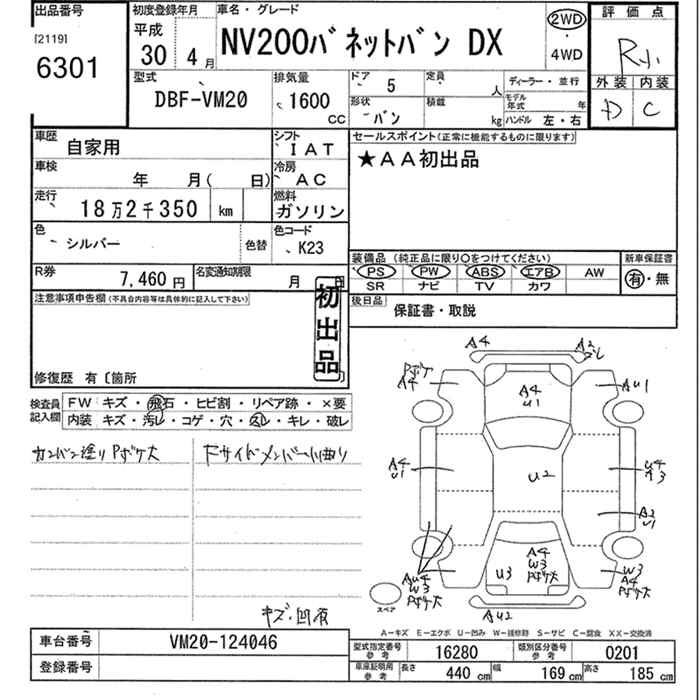 出品番号
[2119]
6301
初度登録年月
平成
30 4月
車名・グレード
NV200バネットバン DX
2WD
・
4WD
評価点
外装 内装
D C
型式
DBF-VM20
排気量
1600
CC
ドア 5
定員 人
形状 バン
積載 kg
ディーラー・並行
モデル年式 年
ハンドル 左・右
車歴 自家用
シフト IAT
車検 年 月( 日)
冷房 AC
走行 18万2千350 km
燃料 ガソリン
色 シルバー
色替
色コード K23
R券 7,460円
名変通知期限 月 日
セールスポイント(正常に機能するものに限ります)
★AA初出品
装備品(純正品に限り○をつけてください)
PS PW ABS エアB AW
SR ナビ TV カワ
新車保証書
有・無
後日品 保証書・取説
注意事項申告欄(不具合内容等は具体的に記入して下さい)
初出品
修復歴 有〔箇所
検査員記入欄
FW キズ・飛石・ヒビ割・リペア跡・×要
内装 キズ・汚レ・コゲ・穴・スレ・キレ・破レ
カンバン塗りPボケ大
Fサイドメンバー小曲り
キズ・凹有
A4
A2
Pボケ
A4
A4
U1
AU1
A4
U1
U2
U4
A3
A2
U1
AU4
W3
Pボケ大
A4
W3
Pボケ大
U3
W3
A4
Pボケ大
スペア
AU2
A-キズ E-エクボ U-凹み W-補修跡 S-サビ C-腐食 XX-交換済
車台番号 VM20-124046
登録番号
型式指定番号 参考 16280
類別区分番号 参考 0201
車庫証明用 参考 長さ 440 cm 幅 169 cm 高さ 185 cm